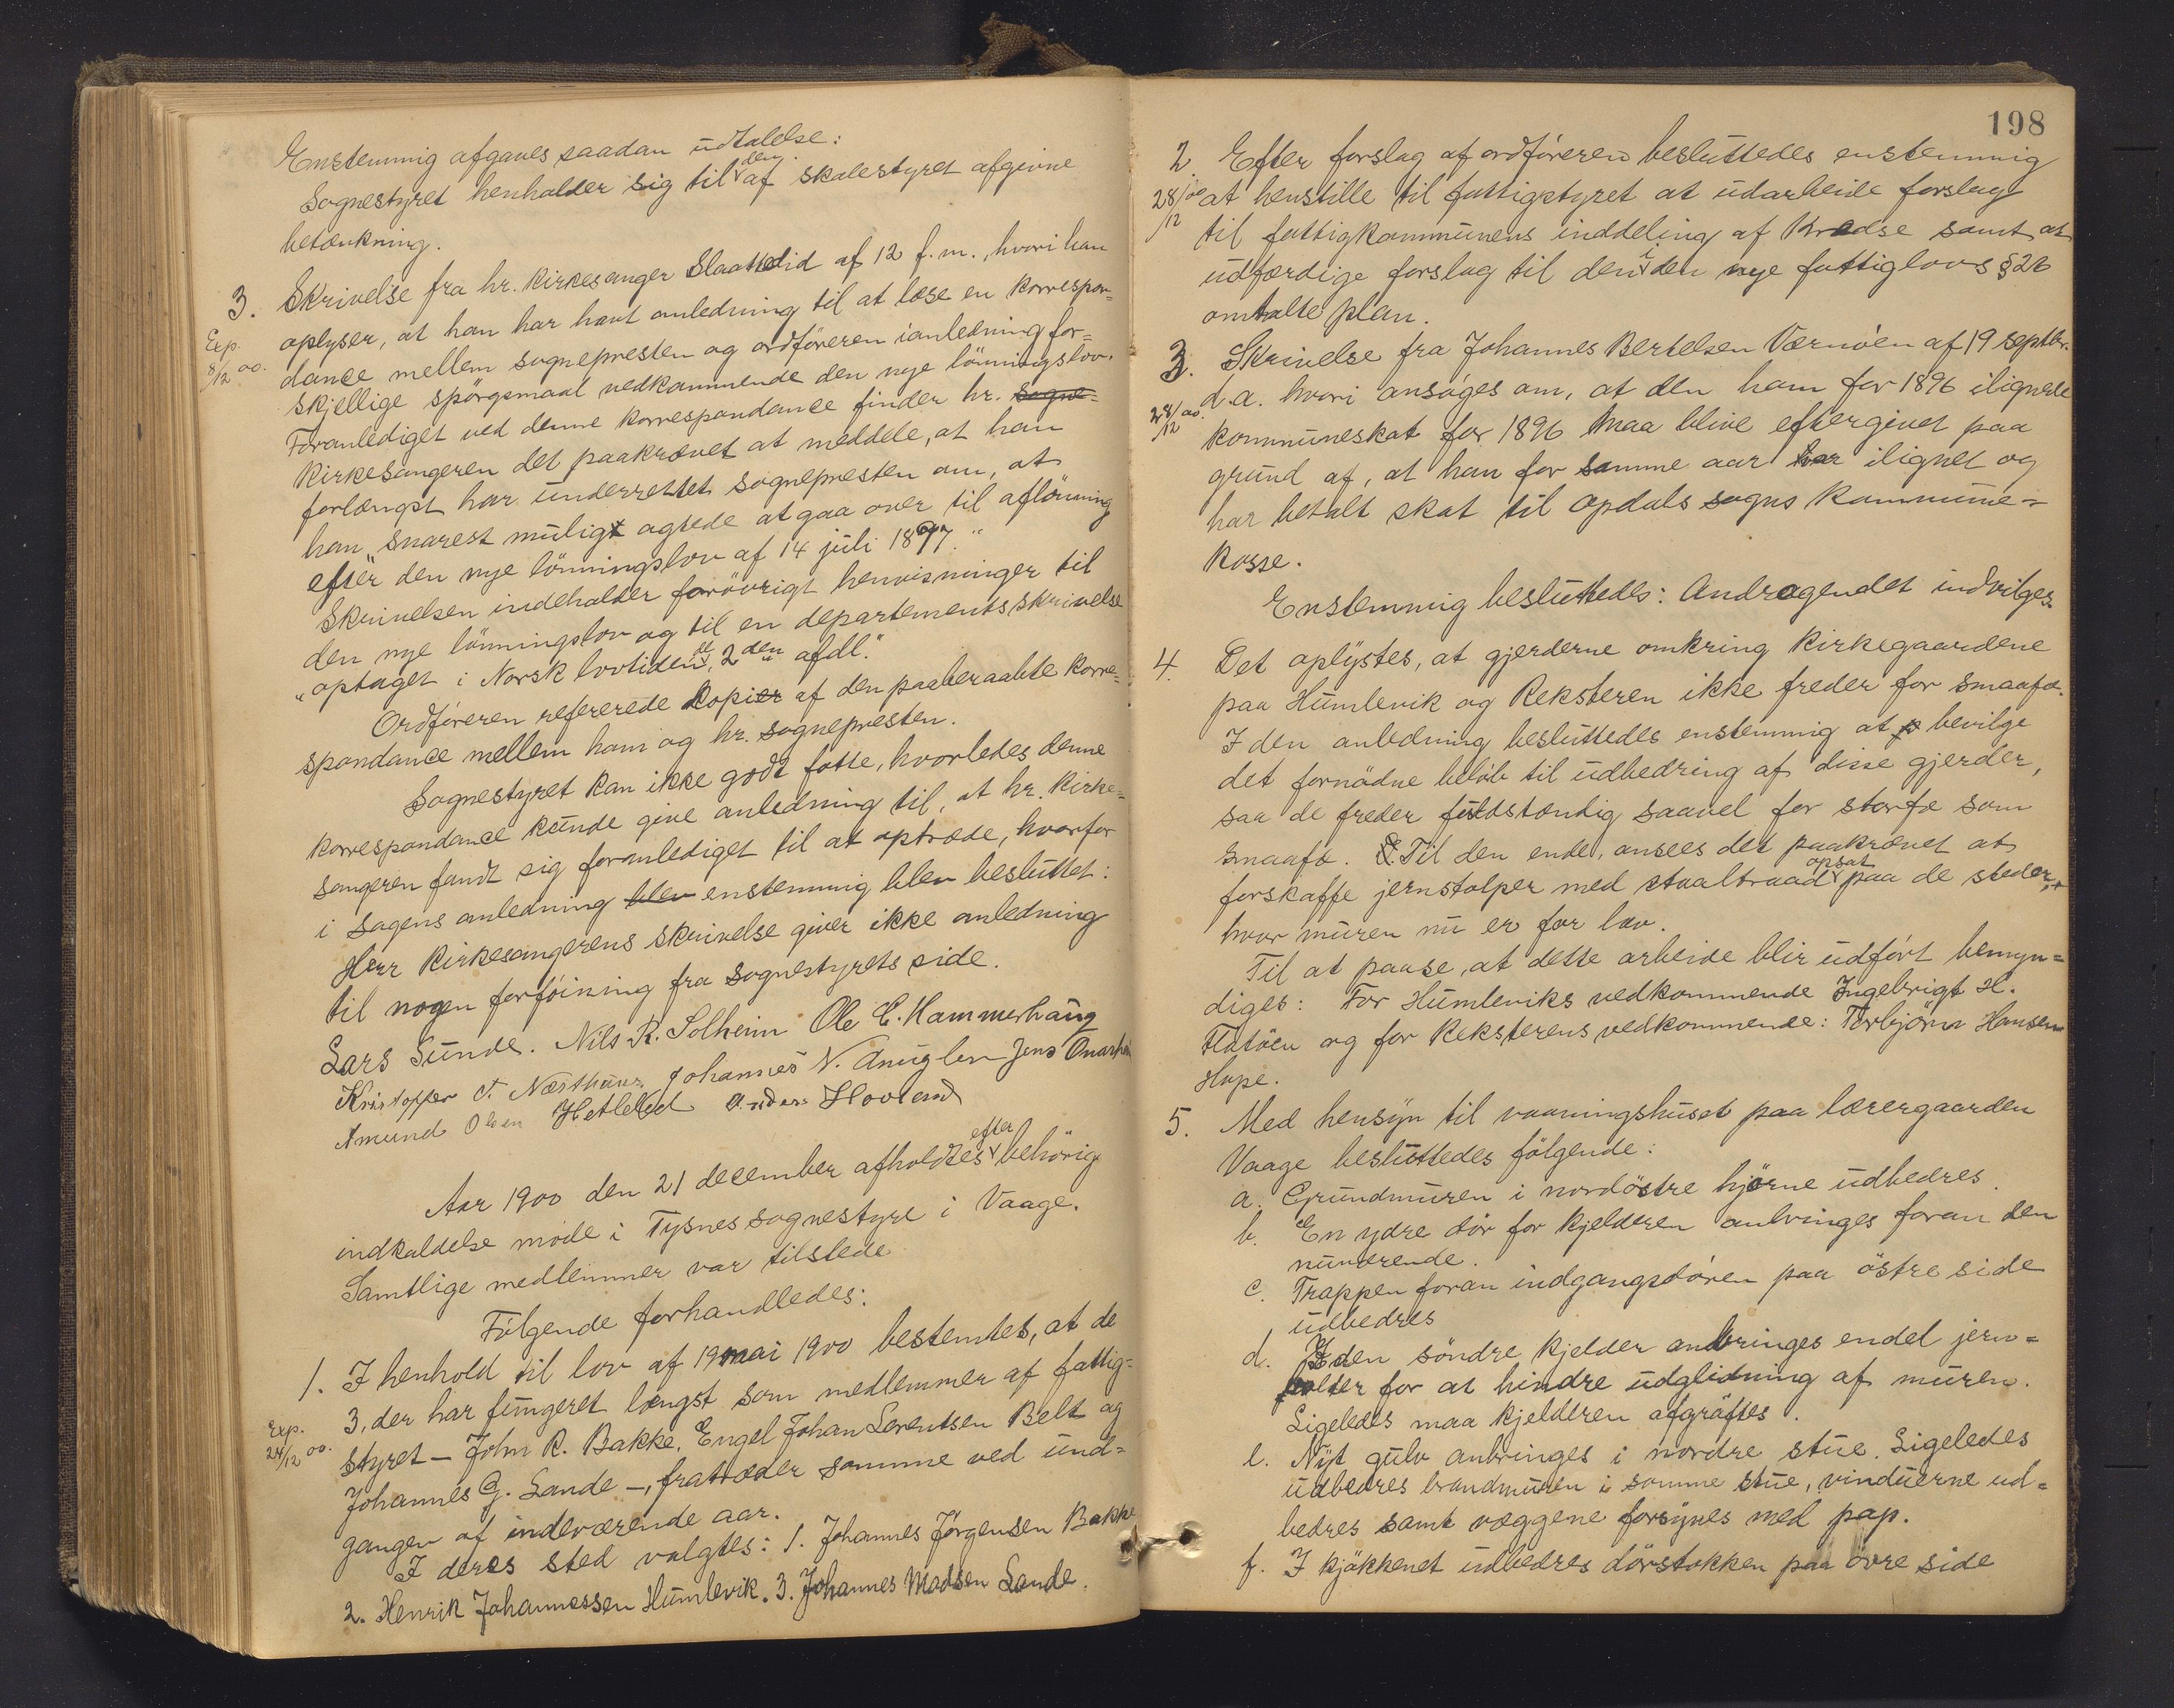 Enstemmig afgaves saadan udtalelse:
Sognestyret henholder sig til den af skolestyret afgivne
betænkning.
3. Skrivelse fra hr. kirkesanger Slaattelid af 12 f. m., hvori han
Exp. 8/12 00. oplyser, at han har havt anledning til at læse en korrespon=
dance mellem sognepresten og ordföreren i anledning for=
skjellige spörgsmaal vedkommende den nye lönningslov.
Foranlediget ved denne korrespondance finder hr. sogne=
kirkesangeren det paakrævet at meddele, at han
forlængst har underrettet sognepresten om, at
han „snarest muligt agtede at gaa over til aflönning
efter den nye lönningslov af 14 juli 1897."
Skrivelsen indeholder forövrigt henvisninger til
den nye lönningslov og til en departementsskrivelse
„optaget i Norsk lovtidende, 2den afdl."
Ordföreren refererede kopier af den paaberaabte korre=
spondance mellem ham og hr. sognepresten.
Sognestyret kan ikke godt fatte, hvorledes denne
korrespondance kunde give anledning til, at hr. kirke=
sangeren fandt sig foranlediget til at optræde, hvorfor
i sagens anledning blev enstemmig blev besluttet:
Herr kirkesangerens skrivelse giver ikke anledning
til nogen forföining fra sognestyrets side.
Lars Sunde. Nils R. Solheim Ole C. Hammerhaug
Kristoffer T. Næsthuus Johannes N. Anuglen Jens Onarheim
Amund Olsen Hetleled Anders Hovland
Aar 1900 den 21 december afholdtes efter behörig
indkaldelse möde i Tysnes sognestyre i Vaage.
Samtlige medlemmer var tilstede
Fölgende forhandledes:
1. I henhold til lov af 19 mai 1900 bestemtes, at de
3, der har fungeret længst som medlemmer af fattig=
Exp. 24/12 00. styret – John R. Bakke, Engel Johan Lorentsen Belt og
Johannes G. Lande –, fratræder samme ved ud=
gangen af indeværende aar.
I deres sted valgtes: 1. Johannes Jörgensen Bakke
2. Henrik Johannessen Humlevik. 3. Johannes Madsen Lande.
198
2. Efter forslag af ordföreren besluttedes enstemmig
28/12 00 at henstille til fattigstyret at udarbeide forslag
til fattigkommunens inddeling af kredse samt at
udfærdige forslag til den i den nye fattiglovs § 26
omtalte plan.
3. Skrivelse fra Johannes Bertelsen Værnöen af 19 septbr.
d. a. hvori ansöges om, at den ham for 1896 ilignede
28/12 00. kommuneskat for 1896 maa blive eftergivet paa
grund af, at han for samme aar har ilignet og
har betalt skat til Opdals sogns kommune=
kasse.
Enstemmig besluttedes: Andragendet indvilges.
4. Det oplystes, at gjerderne omkring kirkegaardene
paa Humlevik og Reksteren ikke freder for smaafæ.
I den anledning besluttedes enstemmig at bevilge
det fornödne belöb til udbedring af disse gjerder,
saa de freder fuldstændig saavel for storfæ som
smaafæ. Til den ende, ansees det paakrævet at
forskaffe jernstolper med staaltraad opsat paa de steder,
hvor muren nu er for lav.
Til at paase, at dette arbeide blir udfört bemyn=
diges: For Humleviks vedkommende Ingebrigt H.
Flatöen og for Reksterens vedkommende: Torbjörn Hansen
Hope.
5. Med hensyn til vaaningshuset paa lærergaarden
Vaage besluttedes fölgende:
a. Grundmuren i nordöstre hjörne udbedres.
b. En ydre dör for kjelderen anbringes foran den
nuværende.
c. Trappen foran indgangsdören paa östre side
udbedres
d. I den söndre kjelder anbringes endel jern=
bolter for at hindre udglidning af muren.
Ligeledes maa kjelderen afgröftes.
e. Nyt gulv anbringes i nordre stue. Ligeledes
udbedres brandmuren i samme stue, vinduerne ud=
bedres samt væggene forsynes med pap.
f. I kjökkenet udbedres dörstokken paa övre side